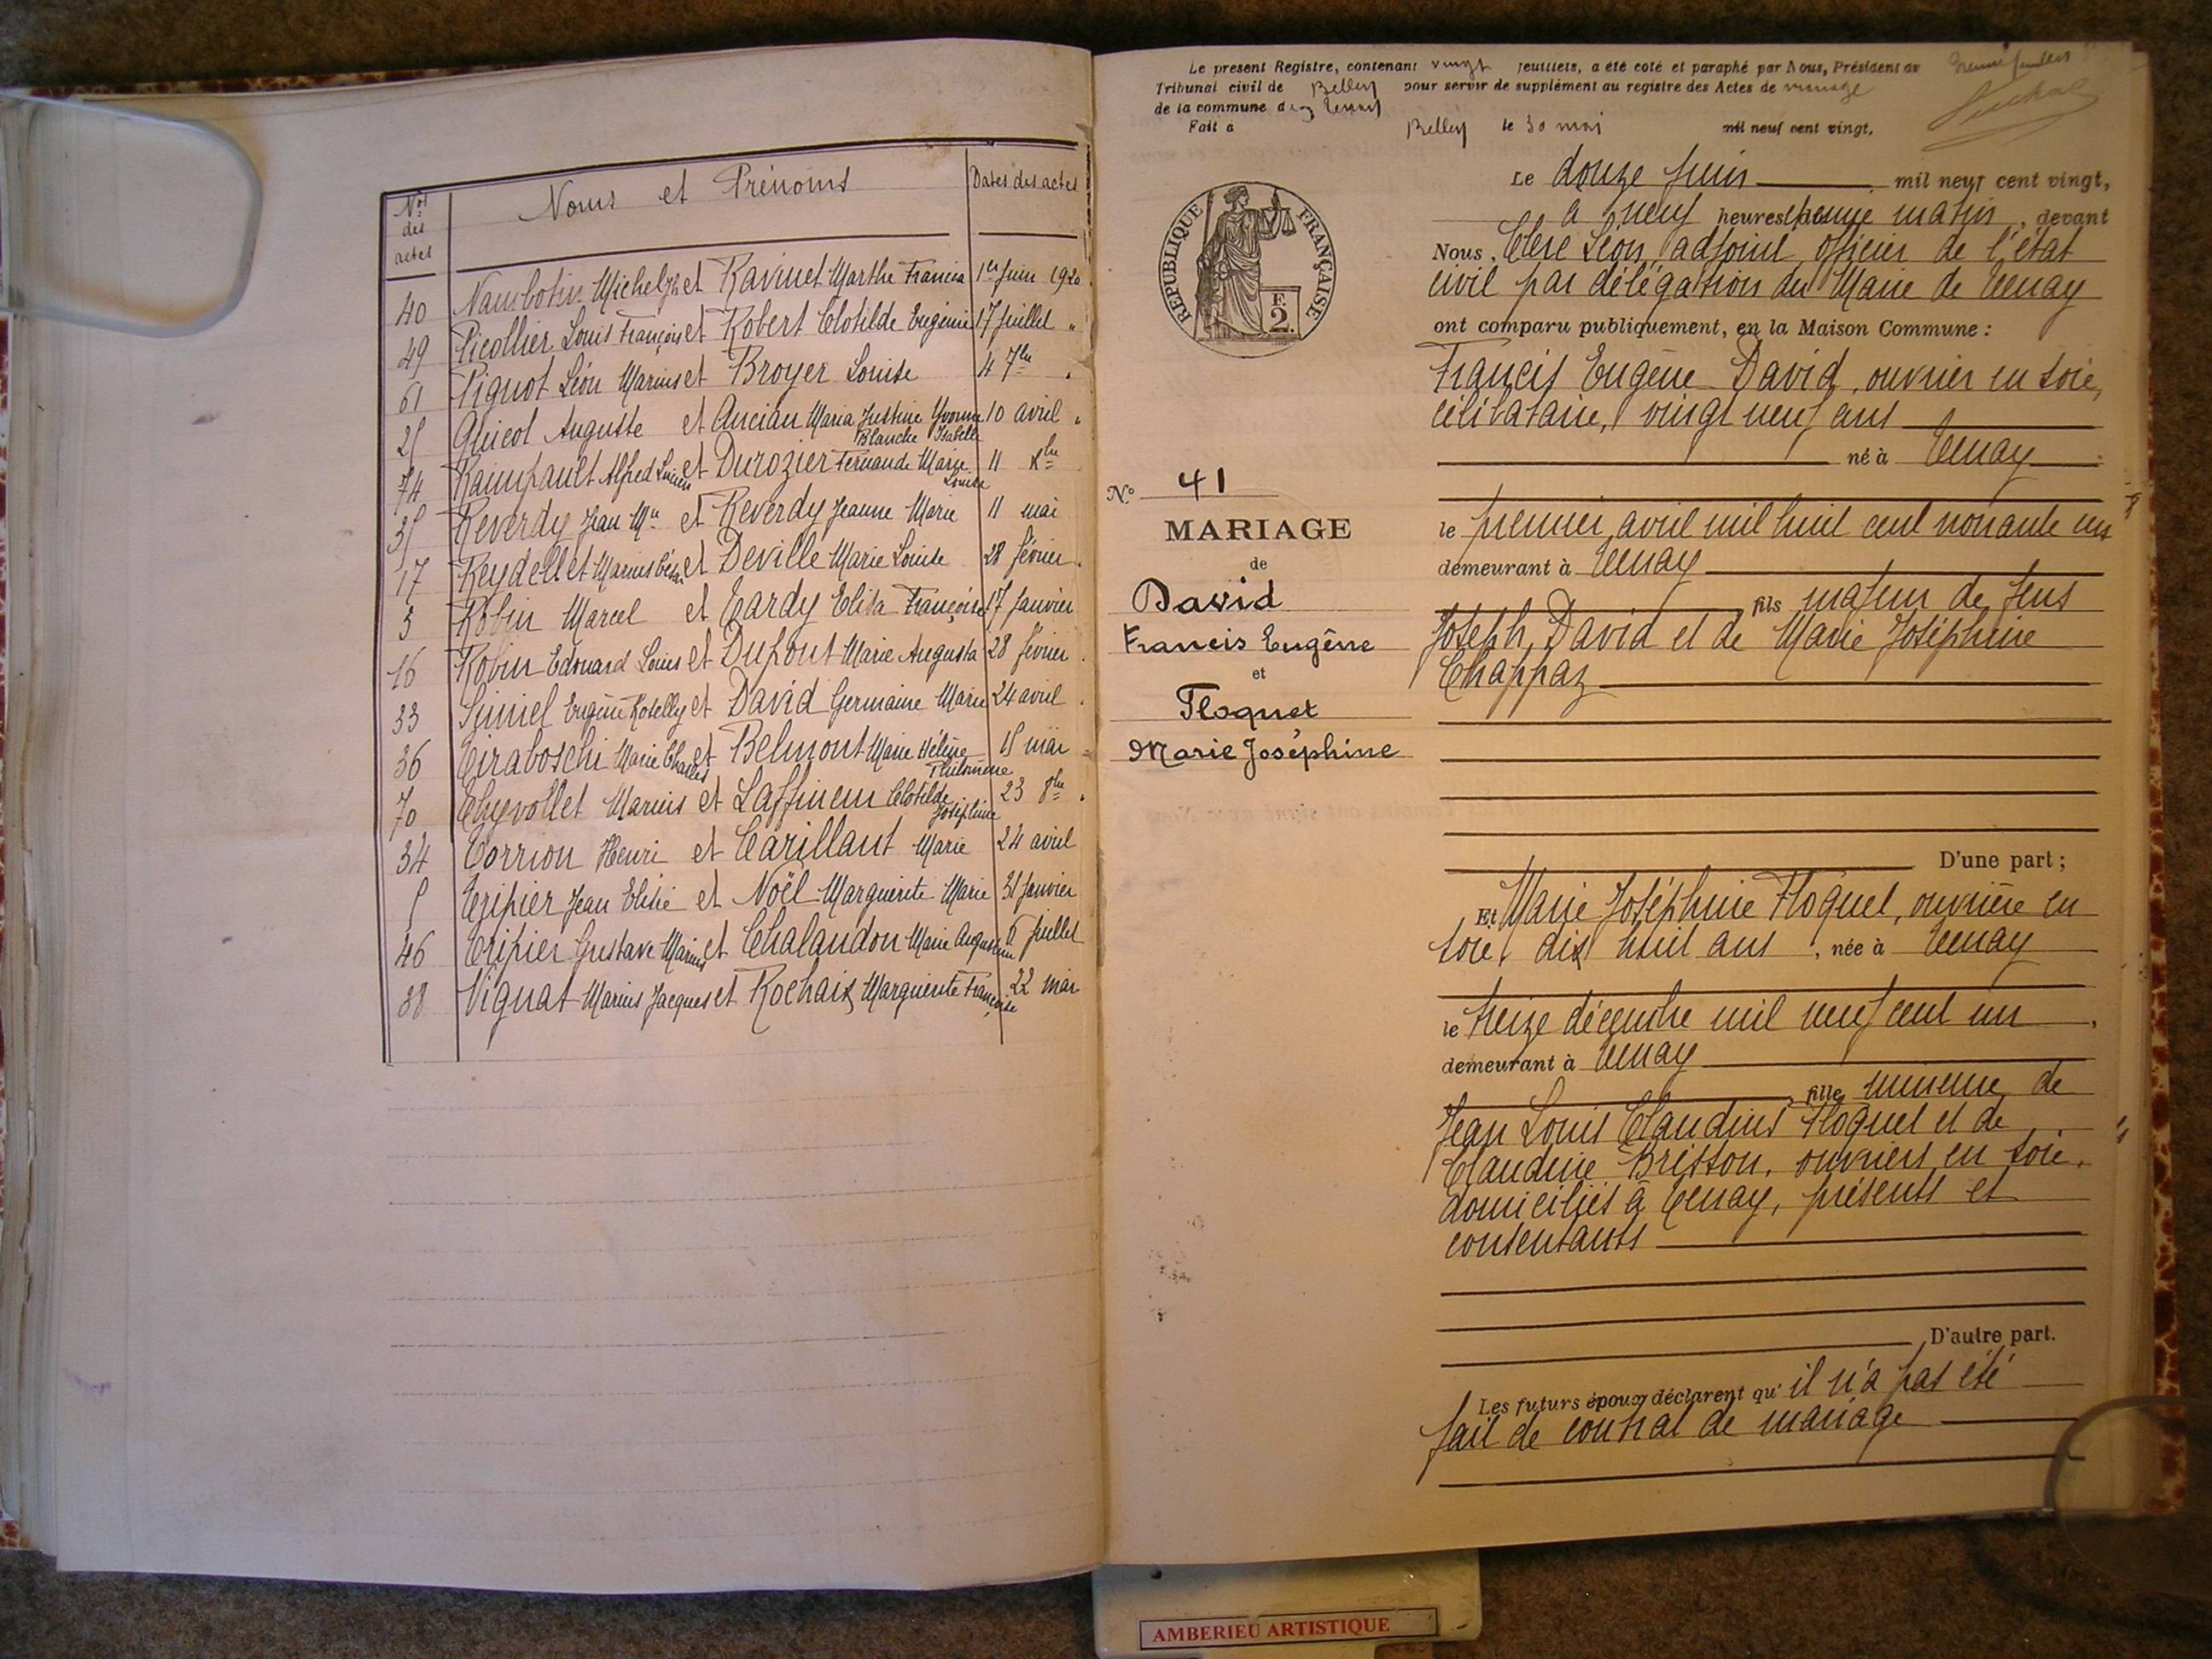 Nos des actes
Noms et Prénoms
Dates des actes
40 Nambotin Michel et Ravinet Marthe Francia 1er Juin 1920
49 Picollier Louis François et Robert Clotilde Eugénie 17 Juillet "
61 Pignot Léon Marius et Broyer Louise 4 7bre "
25 Quicot Auguste et Ancian Maria Justine Yvonne 10 avril "
Blanche Isabelle
74 Rampault Alfred Lucien et Durozier Fernande Marie 11 Xbre
Louise
35 Reverdy Jean Mie et Reverdy Jeanne Marie 11 mai
17 Reydellet Marius César et Deville Marie Louise 28 février "
3 Robin Marcel et Tardy Elisa Françoise 17 Janvier
16 Robin Edouard Louis et Dupont Marie Augusta 28 février "
33 Eugène et David Germaine Marie 24 avril "
36 Tiraboschi Marie Charles et Belmont Marie Hélène 15 mai
Philomène
70 Thyvollet Marius et Laffineur Clotilde 23 8bre "
Joséphine
34 Torrion Henri et Carillant Marie 24 avril
5 Tripier Jean Elisée et Noël Marguerite Marie 31 Janvier
46 Tripier Gustave Marius et Chalandon Marie Juillet
38 Vignat Marius Jacques et Rochaix Marguerite Françoise 22 mai
Le présent Registre, contenant vingt feuillets, a été coté et paraphé par Nous, Président du
Tribunal civil de Belley pour servir de supplément au registre des Actes de mariage
de la commune de Tenay
Fait à Belley le 30 mai mil neuf cent vingt.
REPUBLIQUE FRANÇAISE
F.
2.
N° 41
MARIAGE
de
David
Francis Eugène
et
Floquet
Marie Joséphine
Le douze Juin mil neuf cent vingt,
à neuf heures et demie matin, devant
Nous, Clerc Léon, adjoint, officier de l'état
civil par délégation du Maire de Tenay
ont comparu publiquement, en la Maison Commune :
Francis Eugène David, ouvrier en soie,
célibataire, vingt neuf ans
né à Tenay
le premier avril mil huit cent nonante un
demeurant à Tenay
fils majeur de feus
Joseph David et de Marie Joséphine
Chappaz
D'une part ;
Et Marie Joséphine Floquet, ouvrière en
soie, dix huit ans, née à Tenay
le treize décembre mil neuf cent un,
demeurant à Tenay
, fille mineure de
Jean Louis Claudius Floquet et de
Claudine Brisson, ouvriers en soie,
domiciliés à Tenay, présents et
consentants
D'autre part.
Les futurs époux déclarent qu'il n'a pas été
fait de contrat de mariage
AMBERIEU ARTISTIQUE